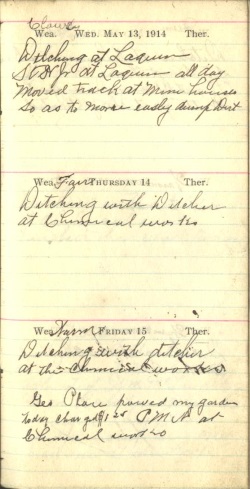 Cloudy
Wea. WED. MAY 13, 1914 Ther.
Ditching at Lagum
at Lagum all day
Moved track at Mine house
so as to more easly dump Dirt
Wea. Fair THURSDAY 14 Ther.
Ditching with Ditcher
at Chemical works
Wea. Warm FRIDAY 15 Ther.
Ditching with ditcher
at the Chemical works
Geo plowed my garden
today charged P.M. at
Chemical works